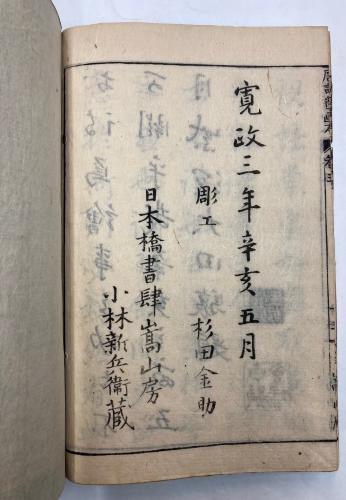 寛政三年辛亥五月
彫工 杉田金助
日本橋書肆 嵩山房
小林新兵衛蔵